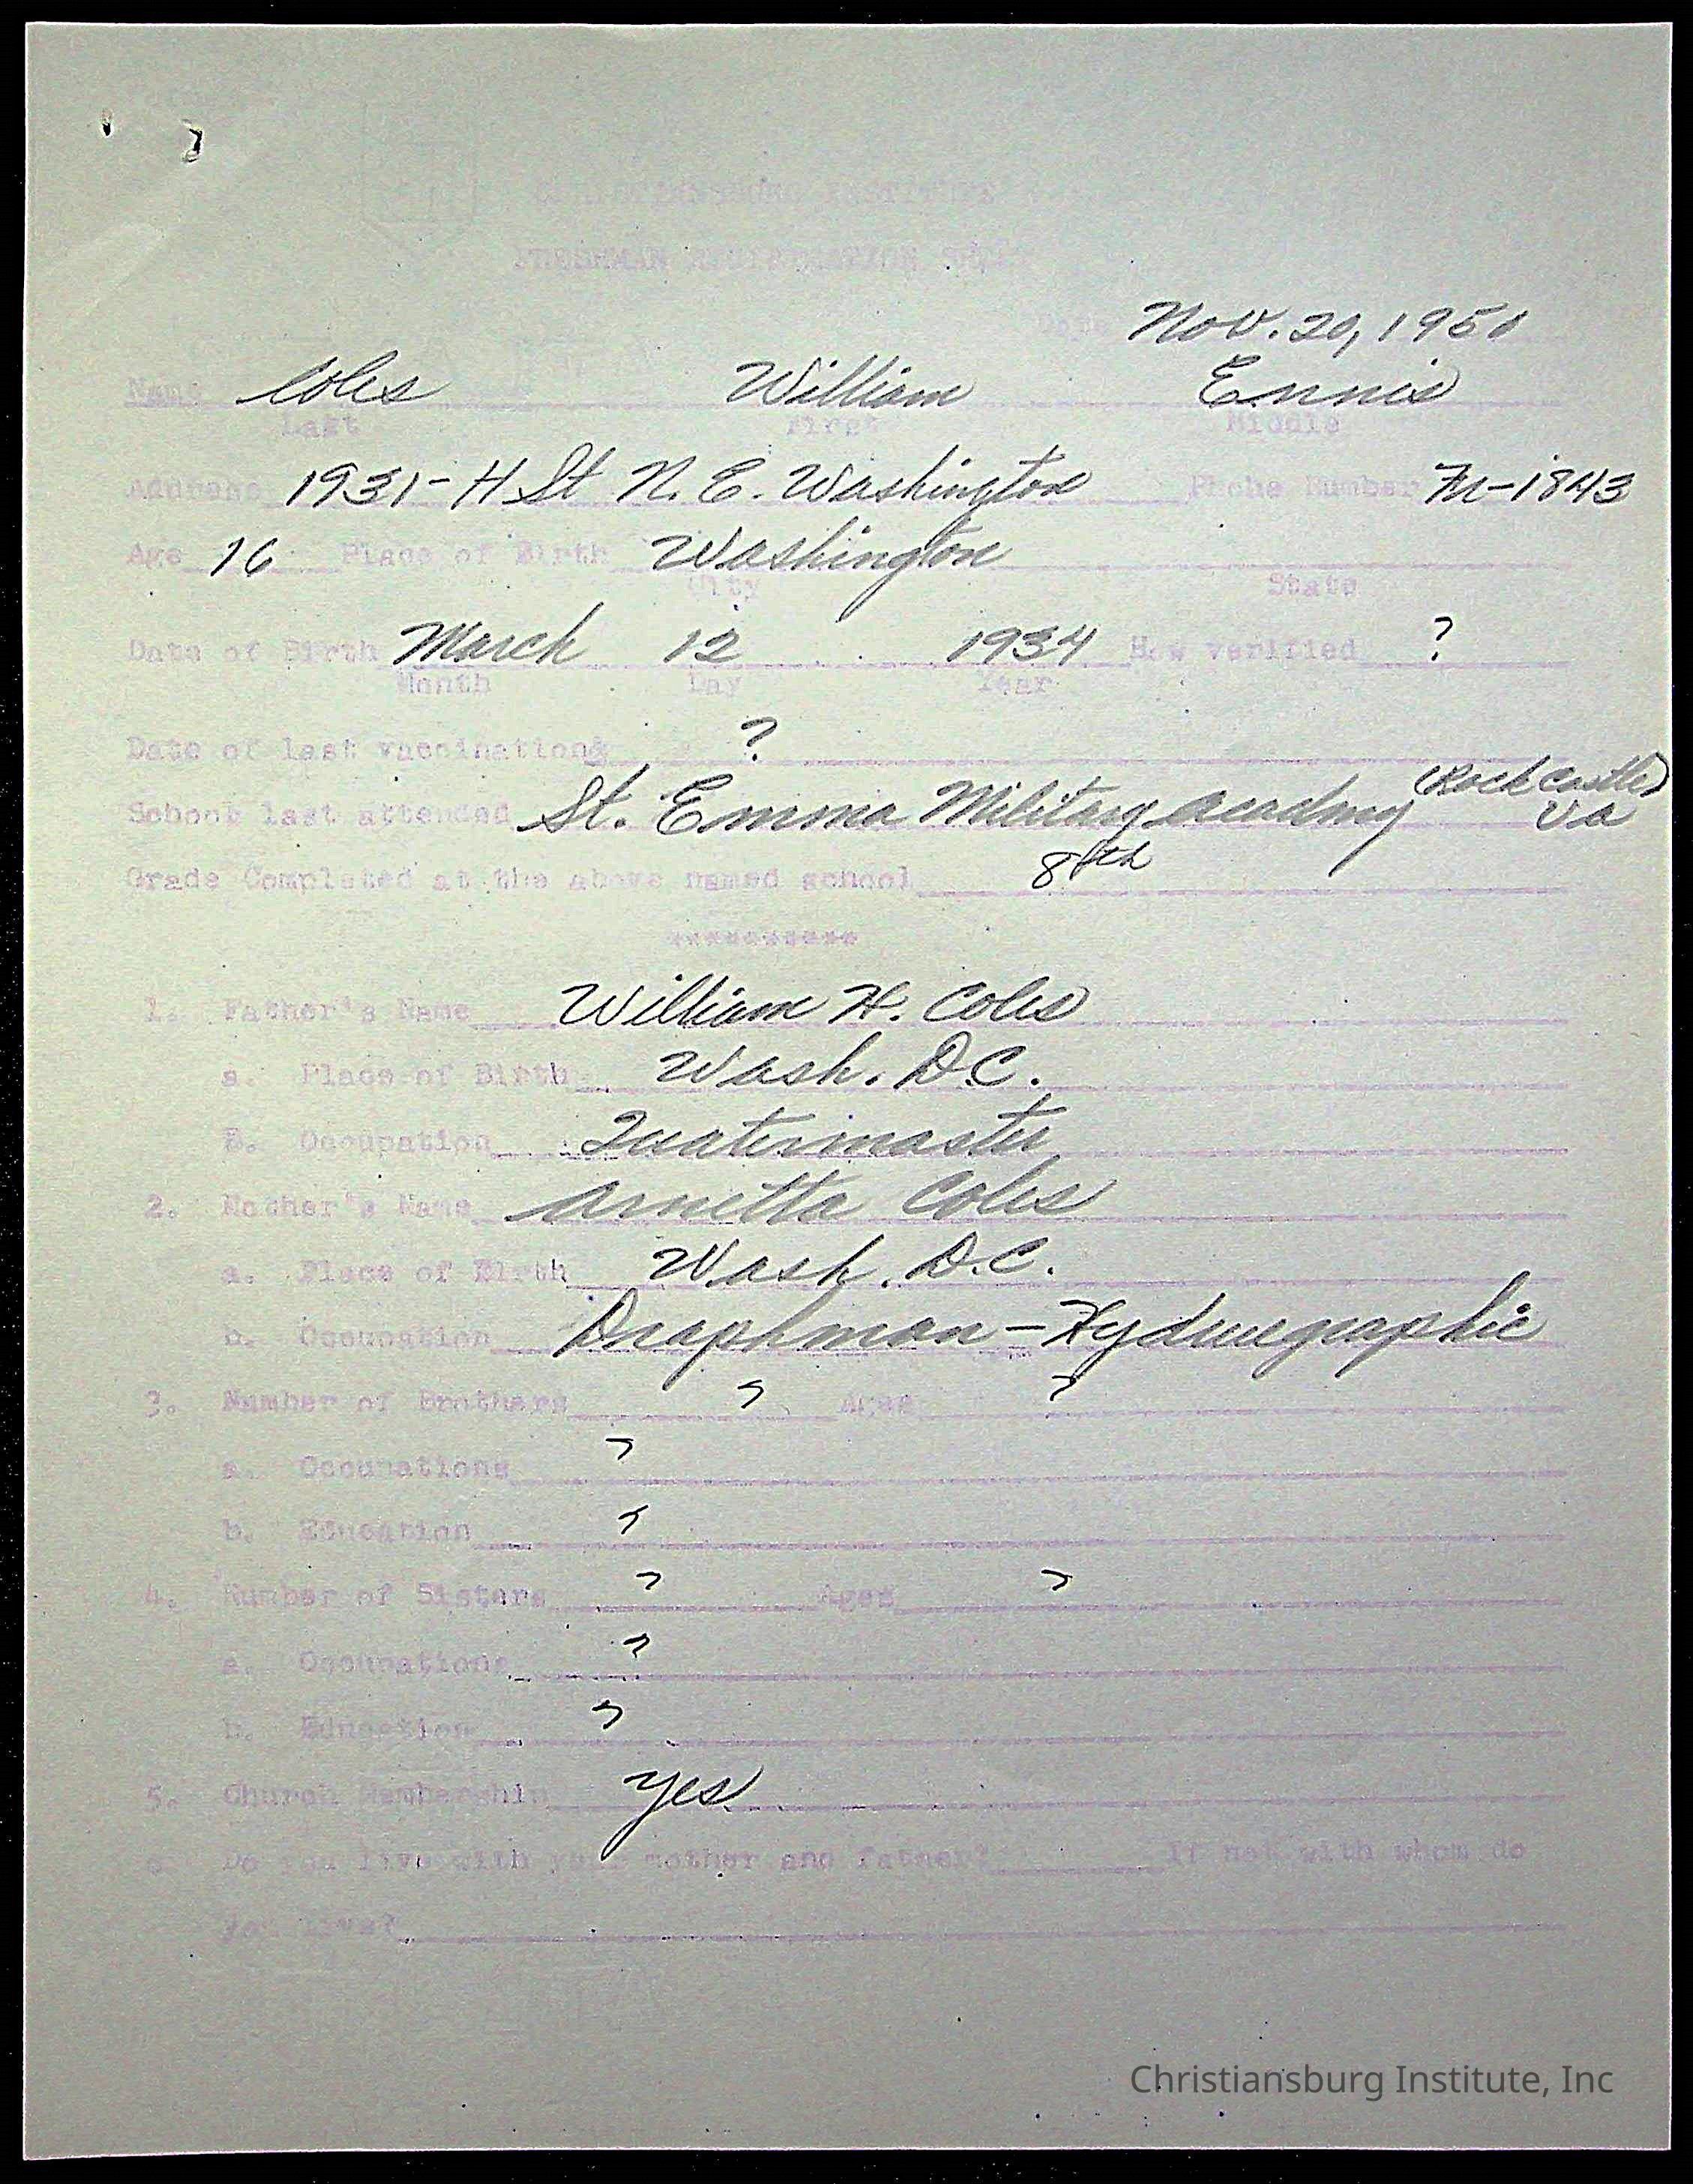 CHRISTIANSBURG INSTITUTE
FRESHMAN INFORMATION SHEET
Date Nov. 20, 1950
Name Coles William Ennis
Last First Middle
Address 1931-H St N. E. Washington Phone Number -1843
Age 16 Place of Birth Washington
City State
Date of Birth March 12 1934 How verified ?
Month Day Year
Date of last vaccination ?
(Rock Castle)
School last attended St. Emma Military Academy Va
Grade Completed at the above named school 8th
***********
1. Father's Name William H. Coles
a. Place of Birth Wash. D.C.
B. Occupation Quatermaster
2. Mother's Name Arnetta Coles
a. Place of Birth Wash. D.C.
b. Occupation Draphman - Hydrugraphic
3. Number of Brothers ? Ages ?
a. Occupations ?
b. Education ?
4. Number of Sisters ? Ages ?
a. Occupations ?
b. Education ?
5. Church Membership yes
6. Do you live with your mother and father? If not with whom do
you live?
Christiansburg Institute, Inc